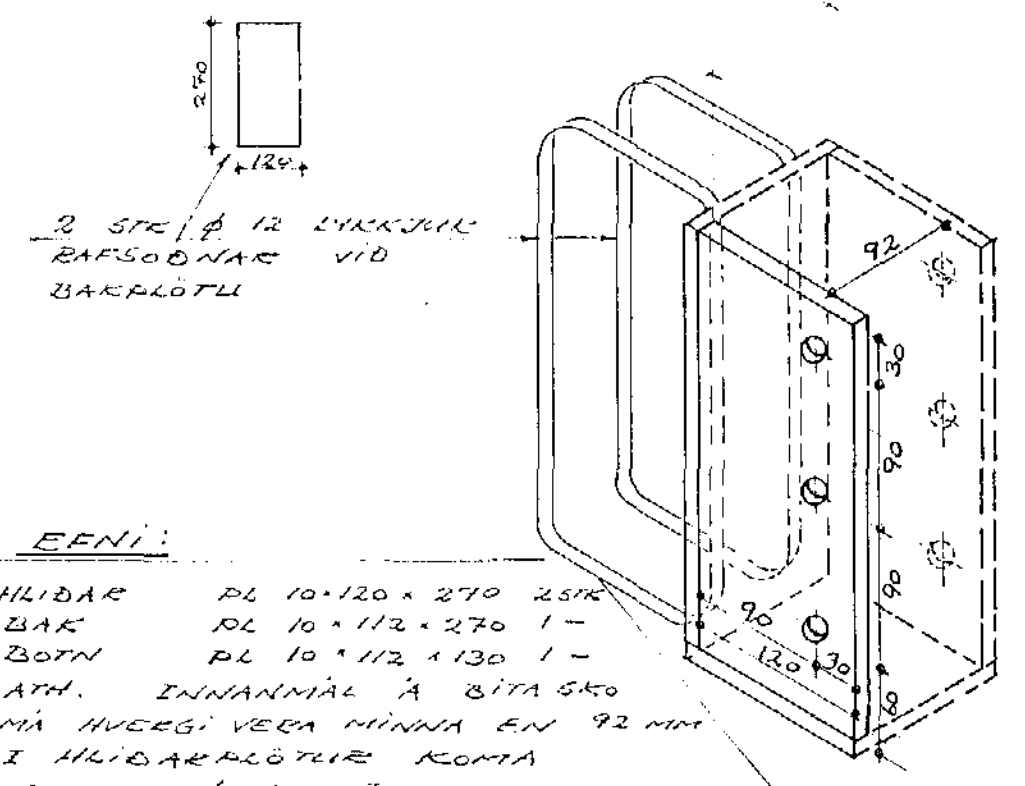 270
120
2 STK ϕ 12 LYKKJUR
RAFSOÐNAR VIÐ
BAKPLÖTU
92
30
90
90
60
90
120 30
EFNI:
HLIÐAR PL 10×120×270 2STK
BAK PL 10×112×270 1 –
BOTN PL 10×112×130 1 –
ATH. INNANMÁL Á BITASKO
MÁ HVERGI VERA MINNA EN 92 MM
Í HLIÐARPLÖTUR KOMA